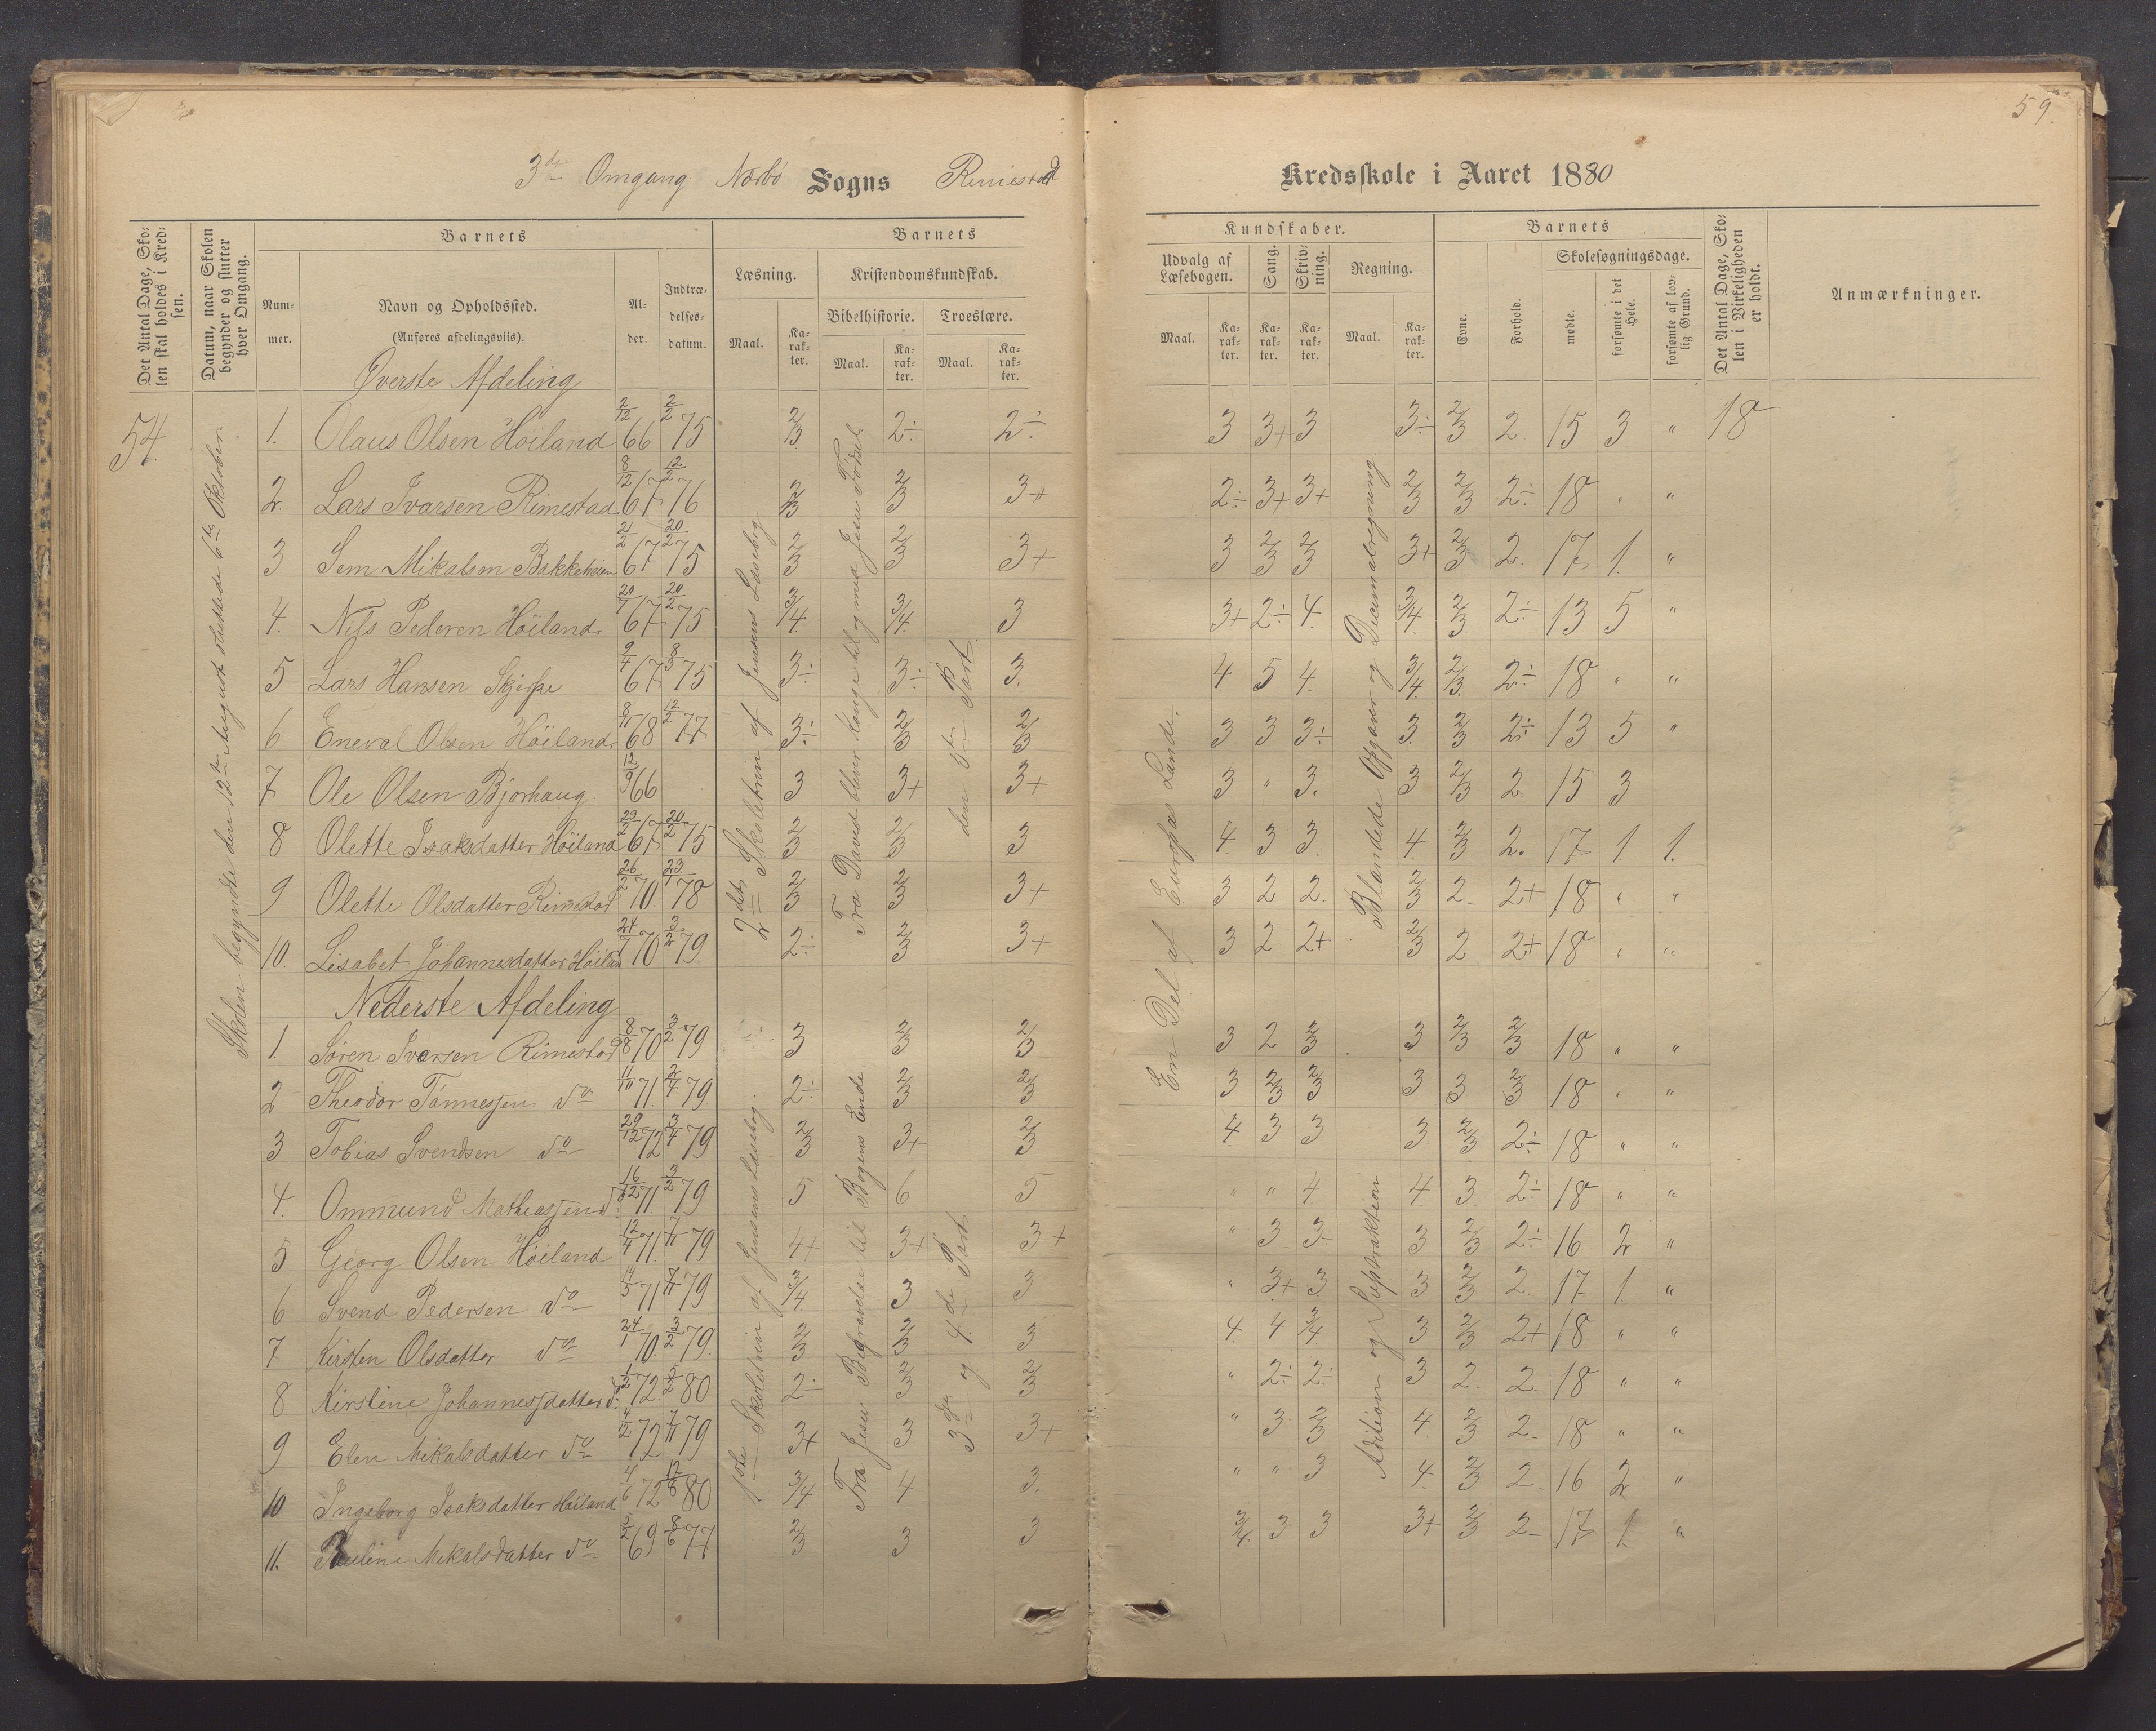 59.
3die Omgang Nærbø Sogns Rimestad Kredsskole i Aaret 1880
Det Antal Dage, Skolen skal holdes i Kredsen.
Datum, naar Skolen begynder og slutter hver Omgang.
Barnets
Nummer.
Navn og Opholdssted.
(Anføres afdelingsviis).
Alder.
Indtrædelsesdatum.
Barnets Kundskaber.
Læsning.
Maal.
Karakter.
Kristendomskundskab.
Bibelhistorie.
Maal.
Karakter.
Troeslære.
Maal.
Karakter.
Udvalg af Læsebogen.
Maal.
Karakter.
Sang.
Karakter.
Skrivning.
Karakter.
Regning.
Maal.
Karakter.
Barnets
Evne.
Forhold.
Skolesøgningsdage.
mødte.
forsømte i det Hele.
forsømte af lovlig Grund.
Det Antal Dage, Skolen i Virkeligheden er holdt.
Anmærkninger.
54.
Skolen begyndte den 12te August sluttede 6te Oktober.
Øverste Afdeling
1. Olaus Olsen Höiland 2/12 66 2/2 75 2/3 2÷ 2÷ 3 3+ 3 3÷ 2/3 2 15 3 " 18
2. Lars Ivarsen Rimestad 8/12 67 12/2 76 2/3 2/3 3+ 2÷ 3+ 3+ 2/3 2/3 2÷ 18 " "
3 Sem Mikalsen Bakkeheien 21/2 67 20/2 75 2/3 2/3 3+ 3 2/3 2/3 3+ 2/3 2. 17 1. "
4. Nils Pederen Höiland 20/7 67 20/2 75 3/4. 3/4. 3 3+ 2÷ 4. 3/4. 2/3 2÷ 13 5 "
5 Lars Hansen Skjerpe 9/4 67 8/3 75 3÷ 3÷ 3. 4 5 4. 3/4. 2/3. 2÷ 18 " "
6 Eneval Olsen Höiland 8/11 68 12/2 77 3÷ 2/3 2/3 3 3 3÷ 3 2/3 2÷ 13 5 "
7 Ole Olsen Bjorhaug. 12/9 66 3 3+ 3+ 3 " 3. 3 2/3 2. 15 3
8 Olette Isaksdatter Höiland 23/2 67 20/2 75 2/3 2/3 3 4. 3 3. 4. 2/3 2. 17 1. 1.
9 Olette Olsdatter Rimestad 26/2 70. 23/1 78 2/3 2/3 3+ 3 2 2. 2/3 2. 2+ 18 " "
10. Lisabet Johannesdatter Höiland 24/7 70 3/2 79. 2÷ 2/3 3+ 3 2 2+ 2/3 2 2+ 18 " "
2det Skoletrin af Jensens Læsebog
Fra David bliver Konge til og med Jesu Fødsel.
den 5te Part.
En Del af Europas Lande.
Blandede Opgaver og Decimalregning
Nederste Afdeling
1. Sören Ivarsen Rimestad 8/8 70 3/2 79 3 2/3 2/3 3 2 2/3 3 2/3 2/3 18 " "
2 Theodor Tönnesjen do 11/10 71. 2/4 79. 2÷ 2/3 2/3 3 2/3 2/3 3 3 2/3 18 " "
3 Tobias Svendsen do 29/12 72 3/4 79 2/3 3+ 2/3 4. 3 3 3 2/3 2÷ 18 " "
4. Ommund Mathiasjen do 16/12 71 3/2 79 5 6 5 " " 4. 4. 3. 2÷ 18 " "
5 Georg Olsen Höiland 12/4 71. 7/11 79 4+ 3+ 3+ " 3 3÷ 3 2/3 2÷ 16 2 "
6 Svend Pedersen do 14/5 71 7/11 79 3/4. 3 3 " 3+ 3 3 2/3 2. 17 1. "
7 Kirsten Olsdatter do 24/1 70. 3/2 79. 2/3 2/3 3 4. 4 3/4. 3 2/3 2+ 18 " "
8 Kirstine Johannesjdatter do 72 80 2÷ 2/3 2/3 " 2÷ 2÷ 3 2. 2. 18 " "
9 Elen Mikalsdatter do 4/2 72 7/11 79 3+ 3 3+ " 3 2/3 4. 2/3 2. 18 " "
10 Ingeborg Isaksdatter Höiland 4/6 72 80 3/4. 4 3. " " 3 4. 2/3 2. 16 2 "
11. Pauline Mikalsdatter do 69 8/6 77 2/3 3 3 3/4 3 3 3+ 2/3 2. 17 1. "
1ste Skoletrin af Jensens Læsebog.
Fra Jesu Begravelse til Bogens Ende.
3die og 4de Part
Adition og Suptraktion